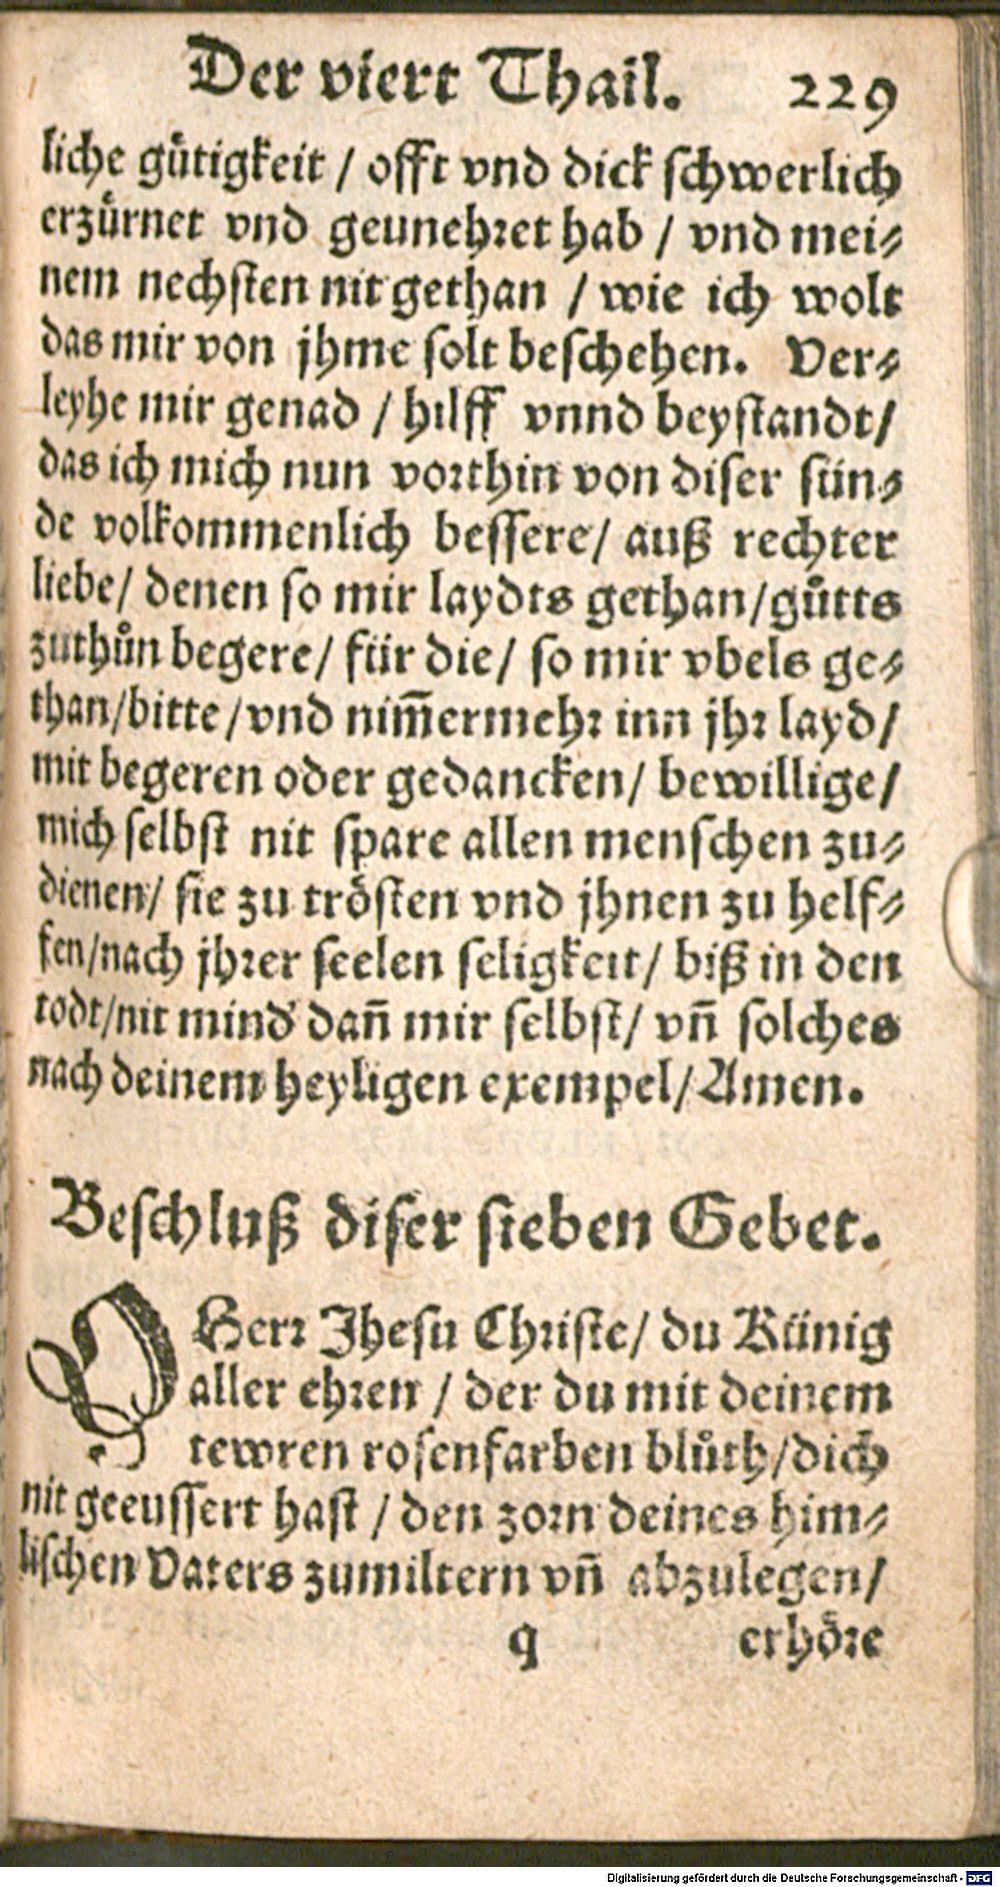 Der viert Thail. 229
liche gütigkeit / offt vnd dick schwerlich
erzürnet vnd geunehret hab / vnd mei-
nem nechsten nit gethan / wie ich wolt
das mir von jhme solt beschehen. Ver-
leyhe mir genad / hilff vnnd beystandt/
das ich mich nun vorthin von diser sün-
de volkommenlich bessere/ auß rechter
liebe/ denen so mir laydts gethan/gůtts
zuthůn begere/ für die/ so mir vbels ge-
than/bitte /vnd nim̃ermehr inn jhr layd/
mit begeren oder gedancken/ bewillige/
mich selbst nit spare allen menschen zu-
dienen/ sie zu trösten vnd jhnen zu helf-
fen/nach jhrer seelen seligkeit/ biß in den
todt/nit mind' dañ mir selbst/ vñ solches
nach deinem heyligen exempel/Amen.
Beschluß diser sieben Gebet.
O Herr Jhesu Christe/ du Künig
aller ehren / der du mit deinem
tewren rosenfarben blůth/dich
nit geeussert hast / den zorn deines him-
lischen Vaters zumiltern vñ abzulegen/
q erhöre
Digitalisierung gefördert durch die Deutsche Forschungsgemeinschaft - DFG